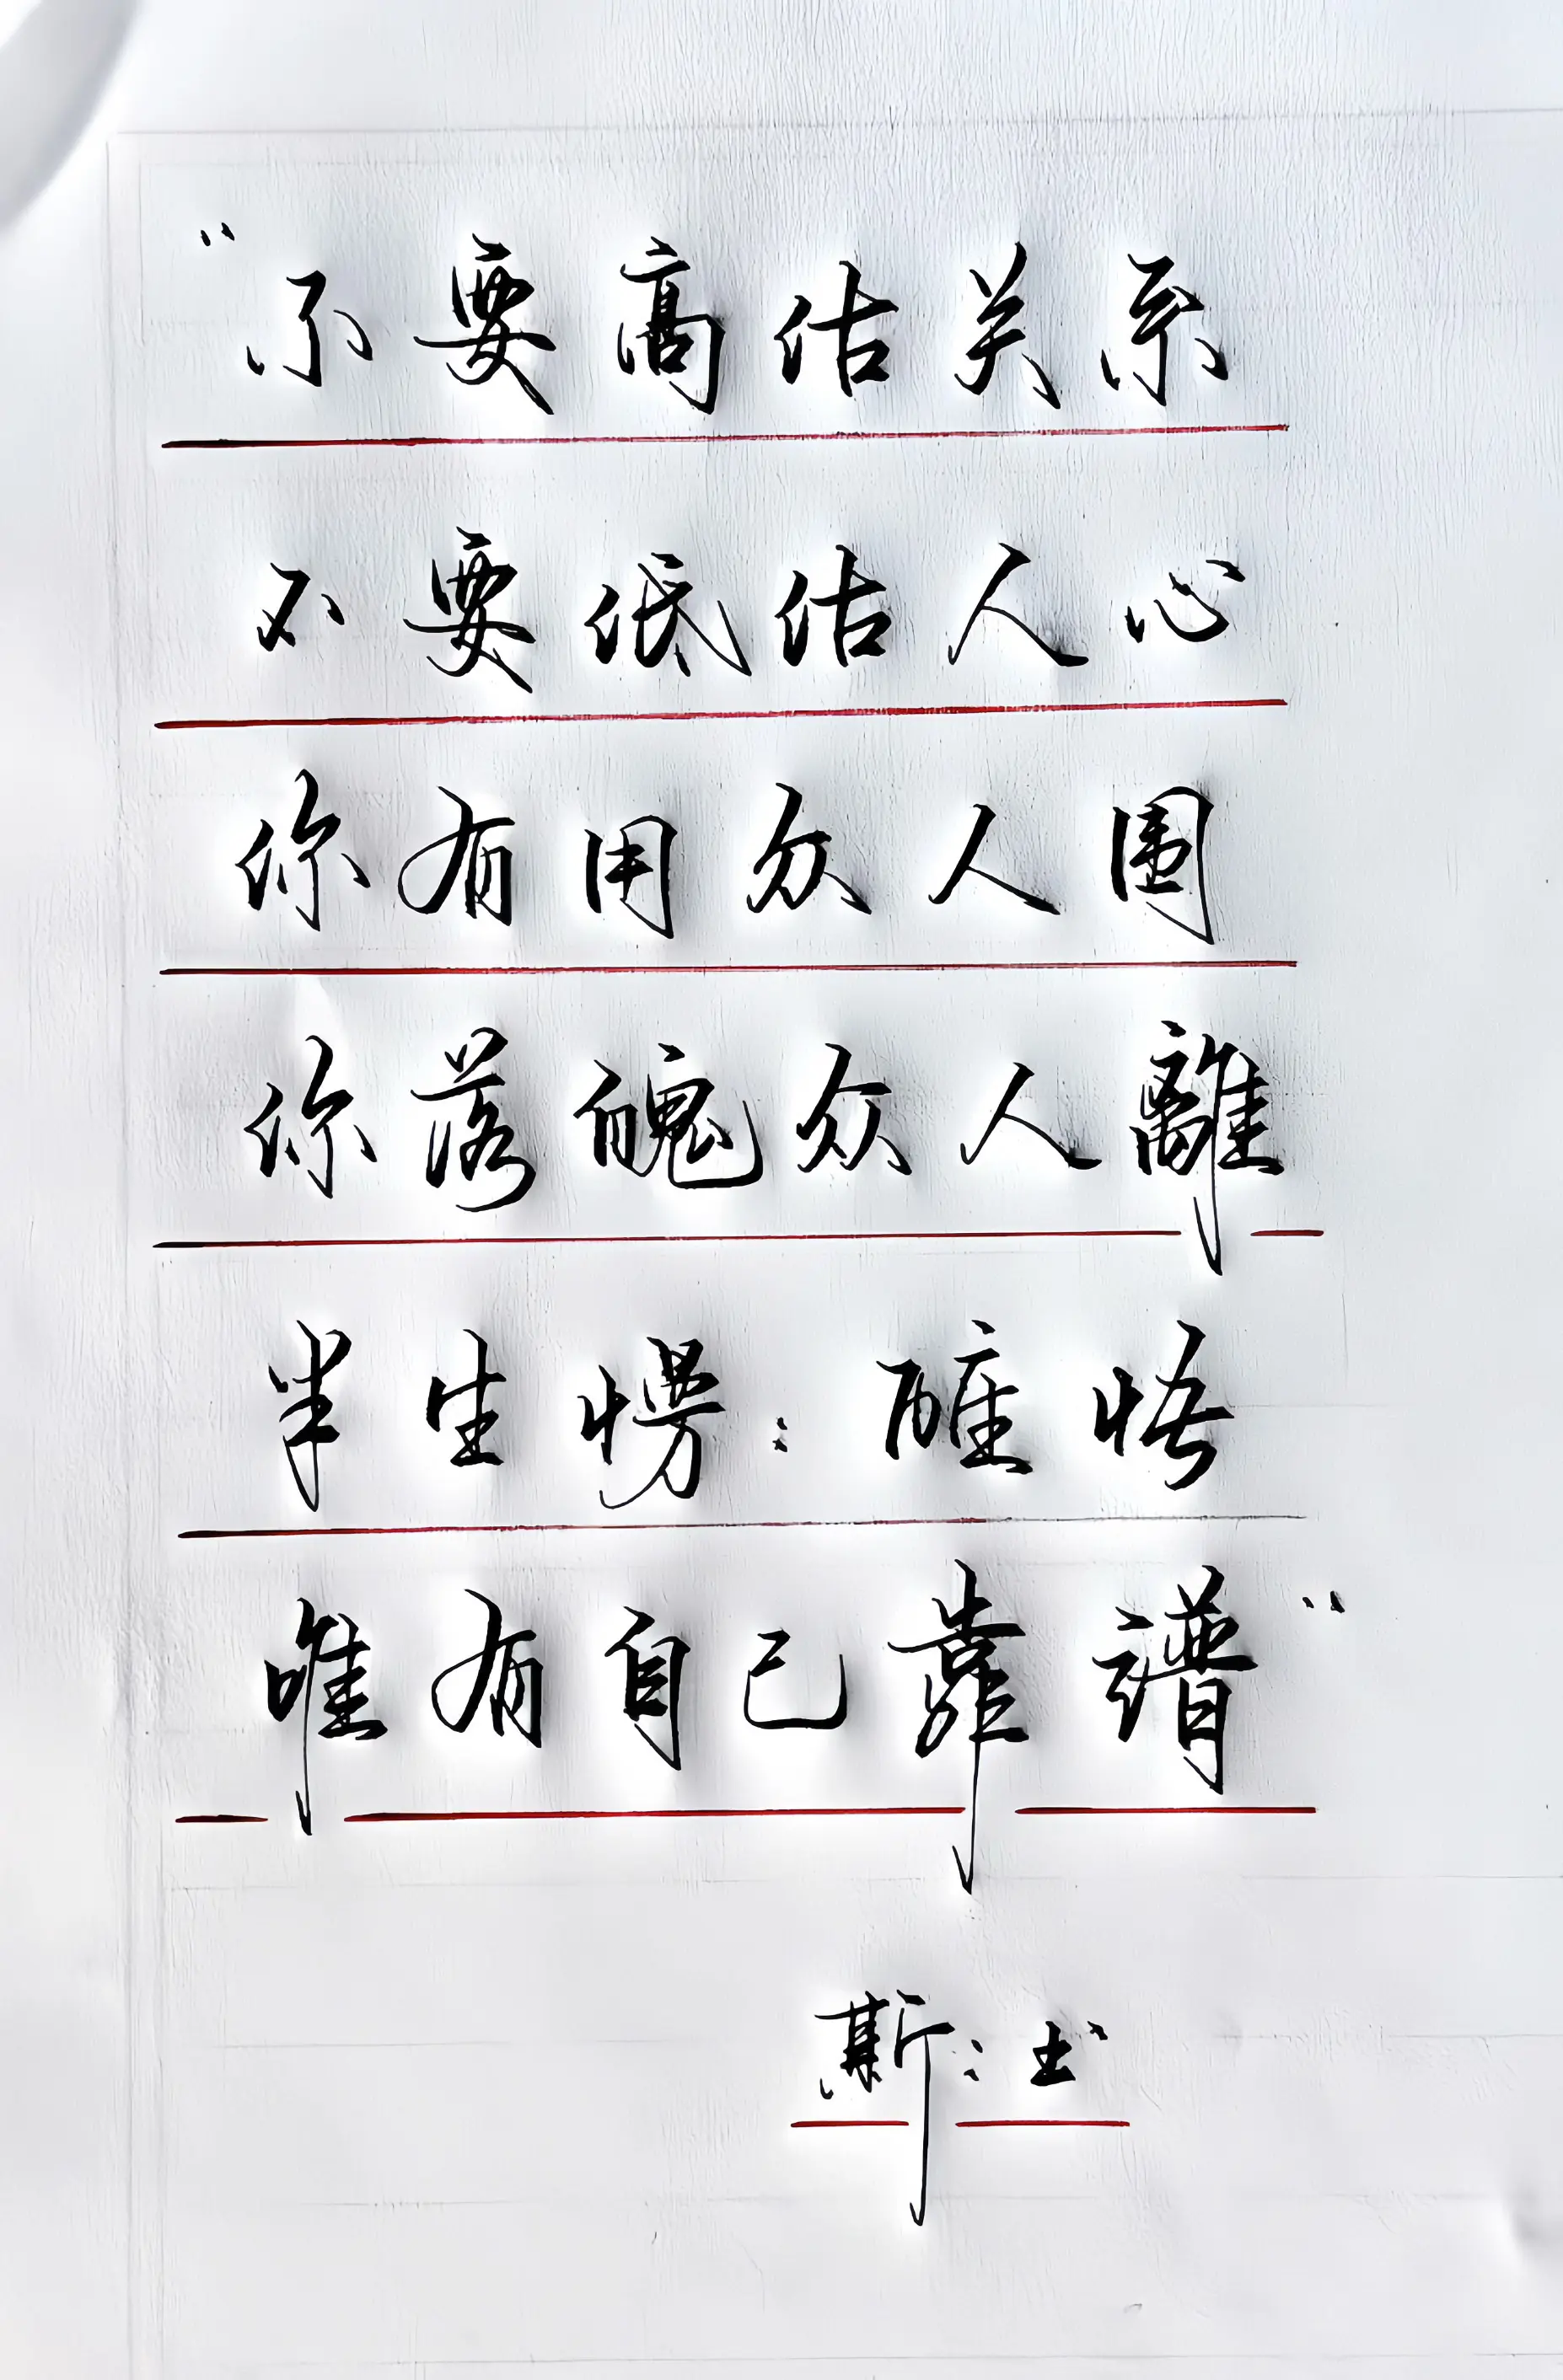 “不要高估关系
不要低估人心
你有用众人围
你落魄众人離
半生愣：醒悟
唯有自己靠譜”
斯：书